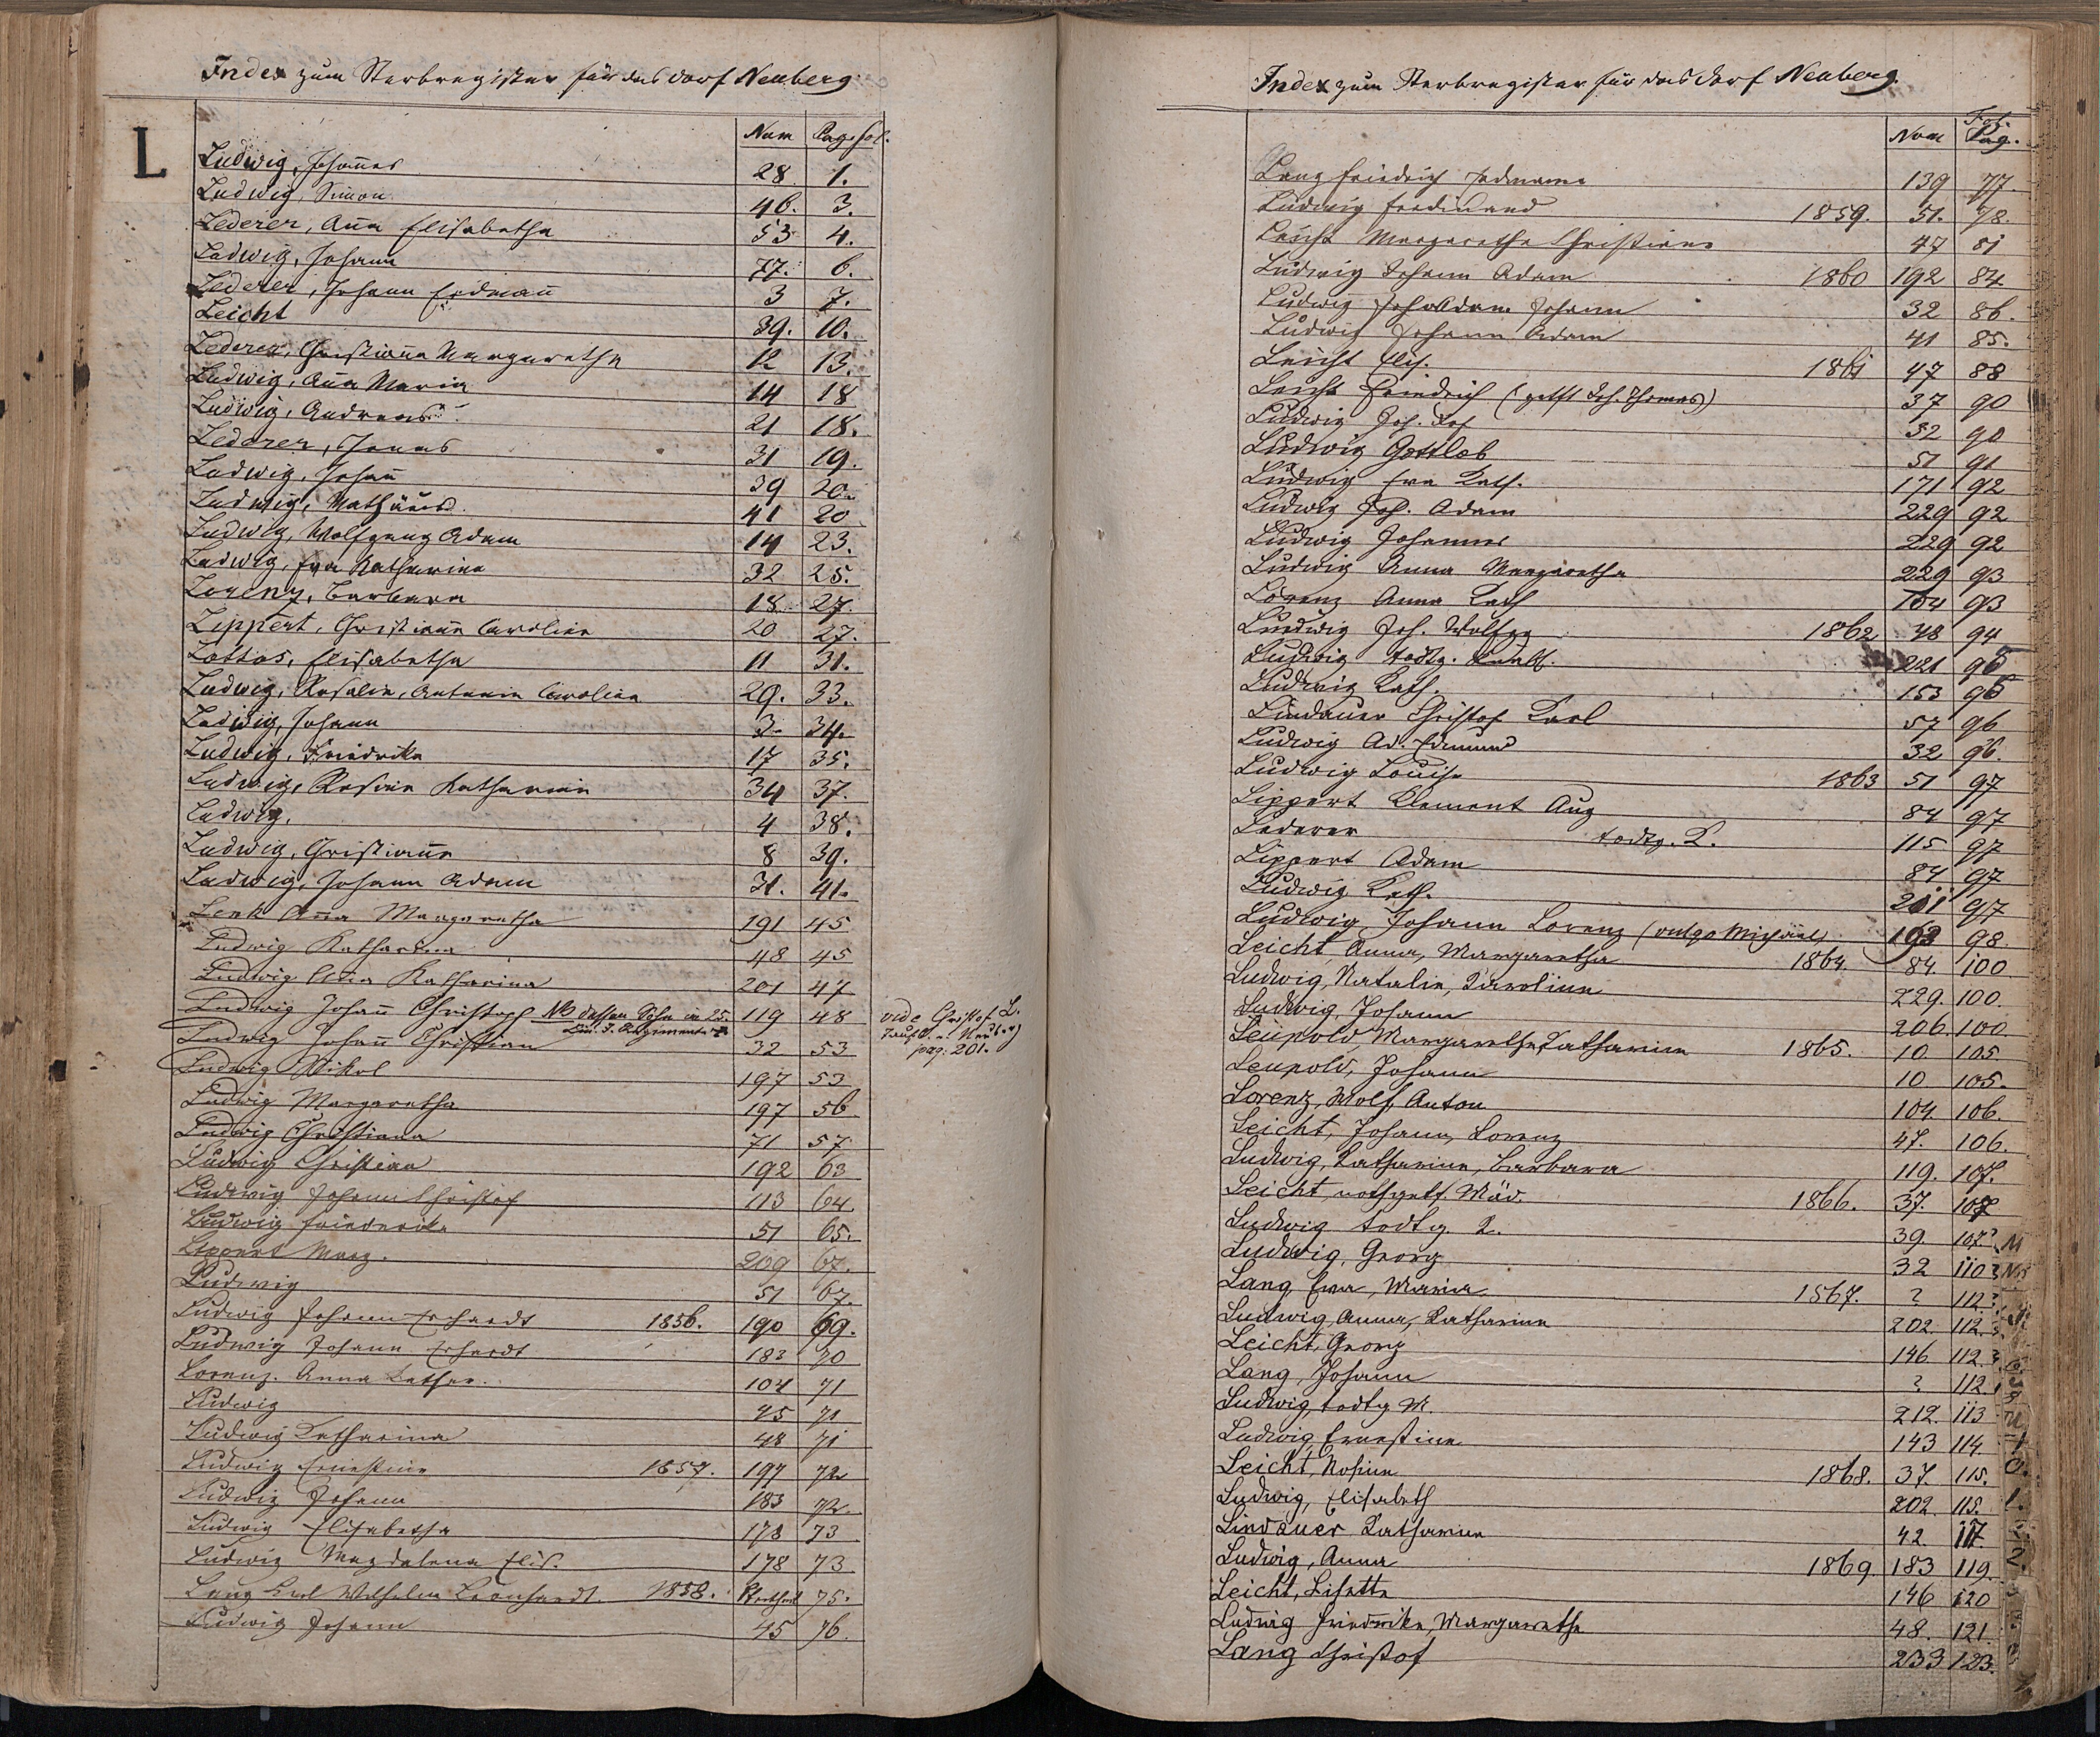 Index zum Sterbregister für das Dorf Neuberg.
L
Num Pag. fol.
Ludwig, Johannes 28 1.
Ludwig, Simon 46. 3.
Lederer, Anna Elisabetha 53 4.
Ludwig, Johann 77. 6.
Lederer, Johann Erdmann 3 7.
Leicht 39. 10.
Lederer, Christiana Margaretha 12 13.
Ludwig, Anna Maria 14 18
Ludwig, Andreas 21 18.
Lederer, Jonas 31 19.
Ludwig, Johann 39 20.
Ludwig, Mathäus 41 20
Ludwig, Wolfgang Adam 14 23.
Ludwig, Eva Katharina 32 25.
Lorenz, Barbara 18 27.
Lippert, Christiana Carolina 20 27.
Lottas, Elisabetha 11 31.
Ludwig, Rosalie, Antonia Carolina 29. 33.
Ludwig, Johann 3. 34.
Ludwig, Friedrike 17 35.
Ludwig, Rosina Katharina 34 37.
Ludwig, 4 38.
Ludwig, Christiana 8 39.
Ludwig, Johann Adam 31. 41.
Lenk Anna Margaretha 191 45
Ludwig Katharina 48 45
Ludwig Eva Katharina 201 47
Ludwig Johann Christoph NB dessen Sohn im 25. 119 48 vide Christof L.
Lin. I. Regimente pag. 201.
Ludwig Johann Christian 32 53
Ludwig Nikol 197 53
Ludwig Margaretha 197 56
Ludwig Christiana 71 57
Ludwig Christian 192 63
Ludwig Johann Christof 113 64.
Ludwig Friederike 51 65.
Lippert Marg. 209 67.
Ludwig 51 67.
Ludwig Johann Erhardt 1856. 190 69.
Ludwig Johann Erhardt 183 70
Lorenz. Anna Kathar. 104 71
Ludwig 45 71
Ludwig Katharina 48 71
Ludwig Ernestine 1857. 197 72
Ludwig Johann 183 72.
Ludwig Elisabetha 178 73
Ludwig Magdalena Elis. 178 73
Lang Karl Wilhelm Leonhardt 1858. 75.
Ludwig Johann 45 76.
Index zum Sterbregister für das Dorf Neuberg.
Num Fol. Pag.
Lang Friedrich Erdmann 139 77.
Ludwig Ferdinand 1859. 51. 78.
Leicht Margaretha Christiane 47 81
Ludwig Johann Adam 1860 192 84
Ludwig Joh Adam Johann 32 86.
Ludwig Johann Adam 41 85.
Leicht Elis. 1861 47 88
Leicht Friedrich (getft Joh. Thomas) 37 90
Ludwig Joh. 32 90
Ludwig Gottlob 51 91
Ludwig Eva Kath. 171 92
Ludwig Joh. Adam 229 92
Ludwig Johannes 229 92
Ludwig Anna Margaretha 229 93
Lorenz Anna Kath 104 93
Ludwig Joh. Wolfgg 1862 48 94
Ludwig todtg. Knabe. 221 95
Ludwig Kath. 153 95
Lindauer Christof Karl 57 96
Ludwig Ad. Edmund 32 96.
Ludwig Louise 1863 51 97
Lippert Klement Aug 84 97
Lederer todtg. K. 115 97
Lippert Adam 84 97
Ludwig Kath. 201 97
Ludwig Johann Lorenz (vulgo Michael) 193 98.
Leicht, Anna, Margaretha 1864. 84. 100
Ludwig, Natalie, Karoline 229. 100.
Ludwig, Johann 206. 100
Leupold Margaretha Katharina 1865. 10 105
Leupold, Johann 10 105.
Lorenz, Wolf, Anton 104. 106.
Leicht, Johann, Lorenz 47. 106.
Ludwig, Katharina, Barbara 119. 107.
Leicht, nothgetf. Mäd. 1866. 37. 107
Ludwig todtg. K. 39. 107
Ludwig, Georg 32 110
Lang, Eva, Maria 1867. ? 112
Ludwig, Anna, Katharina 202. 112.
Leicht, Georg 146 112.
Lang, Johann ? 112.
Ludwig, todtg M. 212. 113
Ludwig Ernestine 143 114
Leicht, Rosina 1868. 37. 115.
Ludwig, Elisabeth 202. 115.
Lindauer Katharina 42. 117.
Ludwig, Anna 1869. 183 119.
Leicht, Lisette 146 120
Ludwig Friedrike, Margaretha 48. 121.
Lang Christof 233 123.